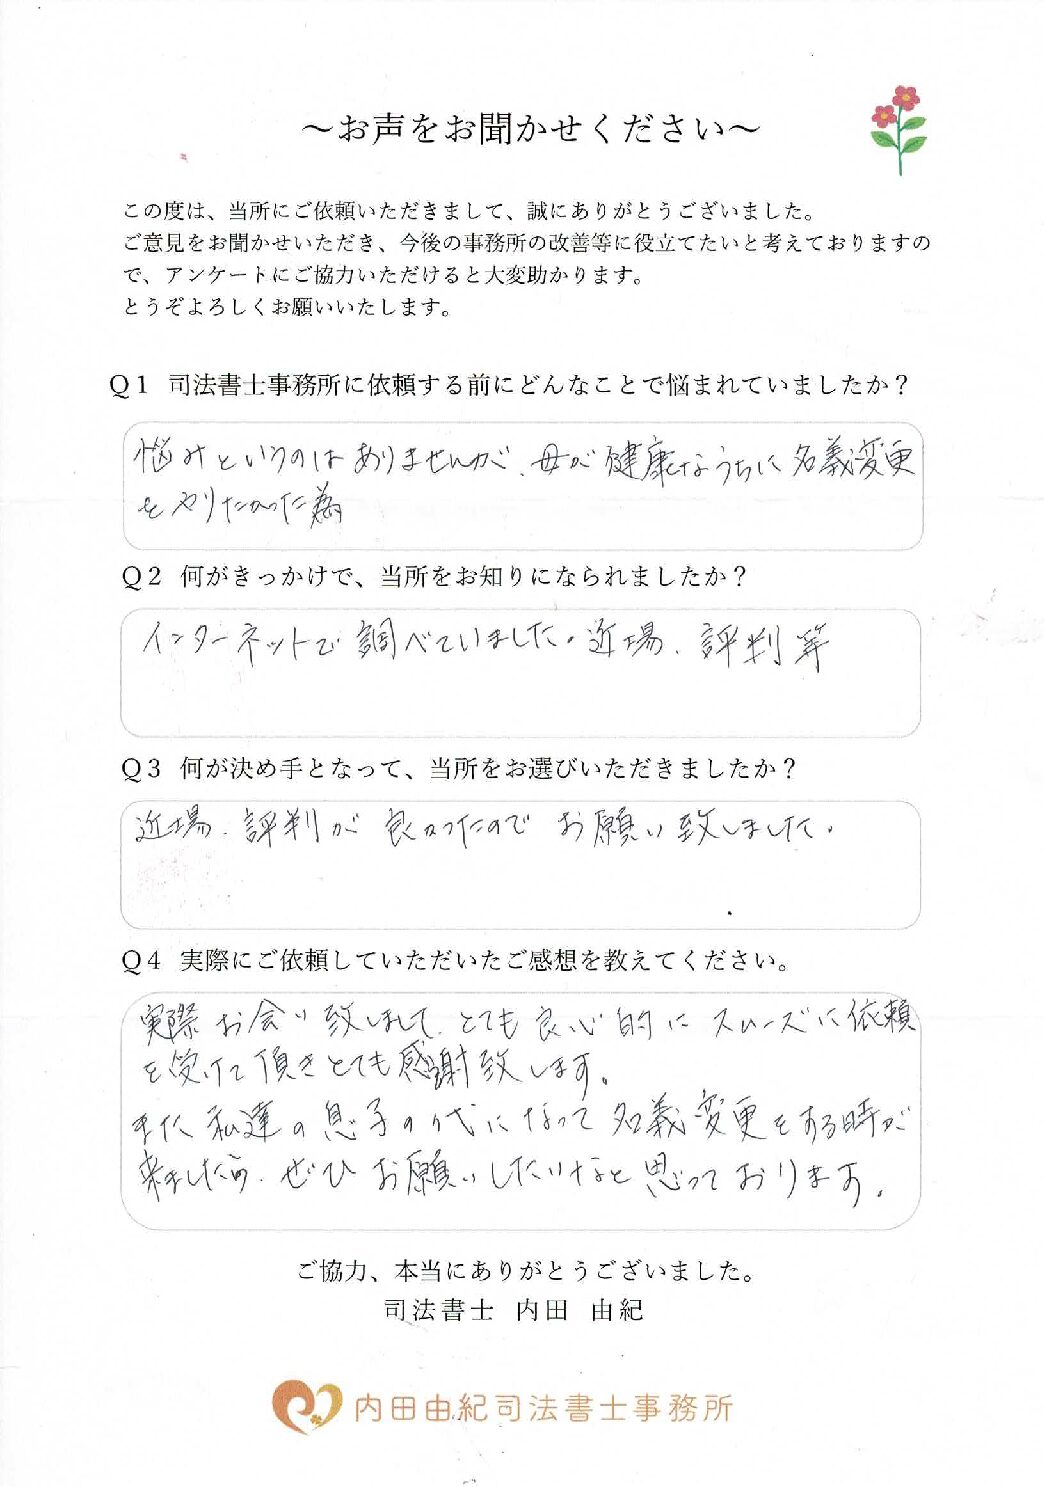 ～お声をお聞かせください～
この度は、当所にご依頼いただきまして、誠にありがとうございました。
ご意見をお聞かせいただき、今後の事務所の改善等に役立てたいと考えておりますの
で、アンケートにご協力いただけると大変助かります。
とうぞよろしくお願いいたします。
Q1 司法書士事務所に依頼する前にどんなことで悩まれていましたか？
悩みというのはありませんが、母が健康なうちに名義変更
をやりたかった為
Q2 何がきっかけで、当所をお知りになられましたか？
インターネットで調べていました。近場、評判等
Q3 何が決め手となって、当所をお選びいただきましたか？
近場、評判が良かったのでお願い致しました。
Q4 実際にご依頼していただいたご感想を教えてください。
実際お会い致しまして、とても良心的にスムーズに依頼
を受けて頂きとても感謝致します。
また私達の息子の代になって名義変更をする時が
来ましたら、ぜひお願いしたいなと思っております。
ご協力、本当にありがとうございました。
司法書士 内田 由紀
内田由紀司法書士事務所